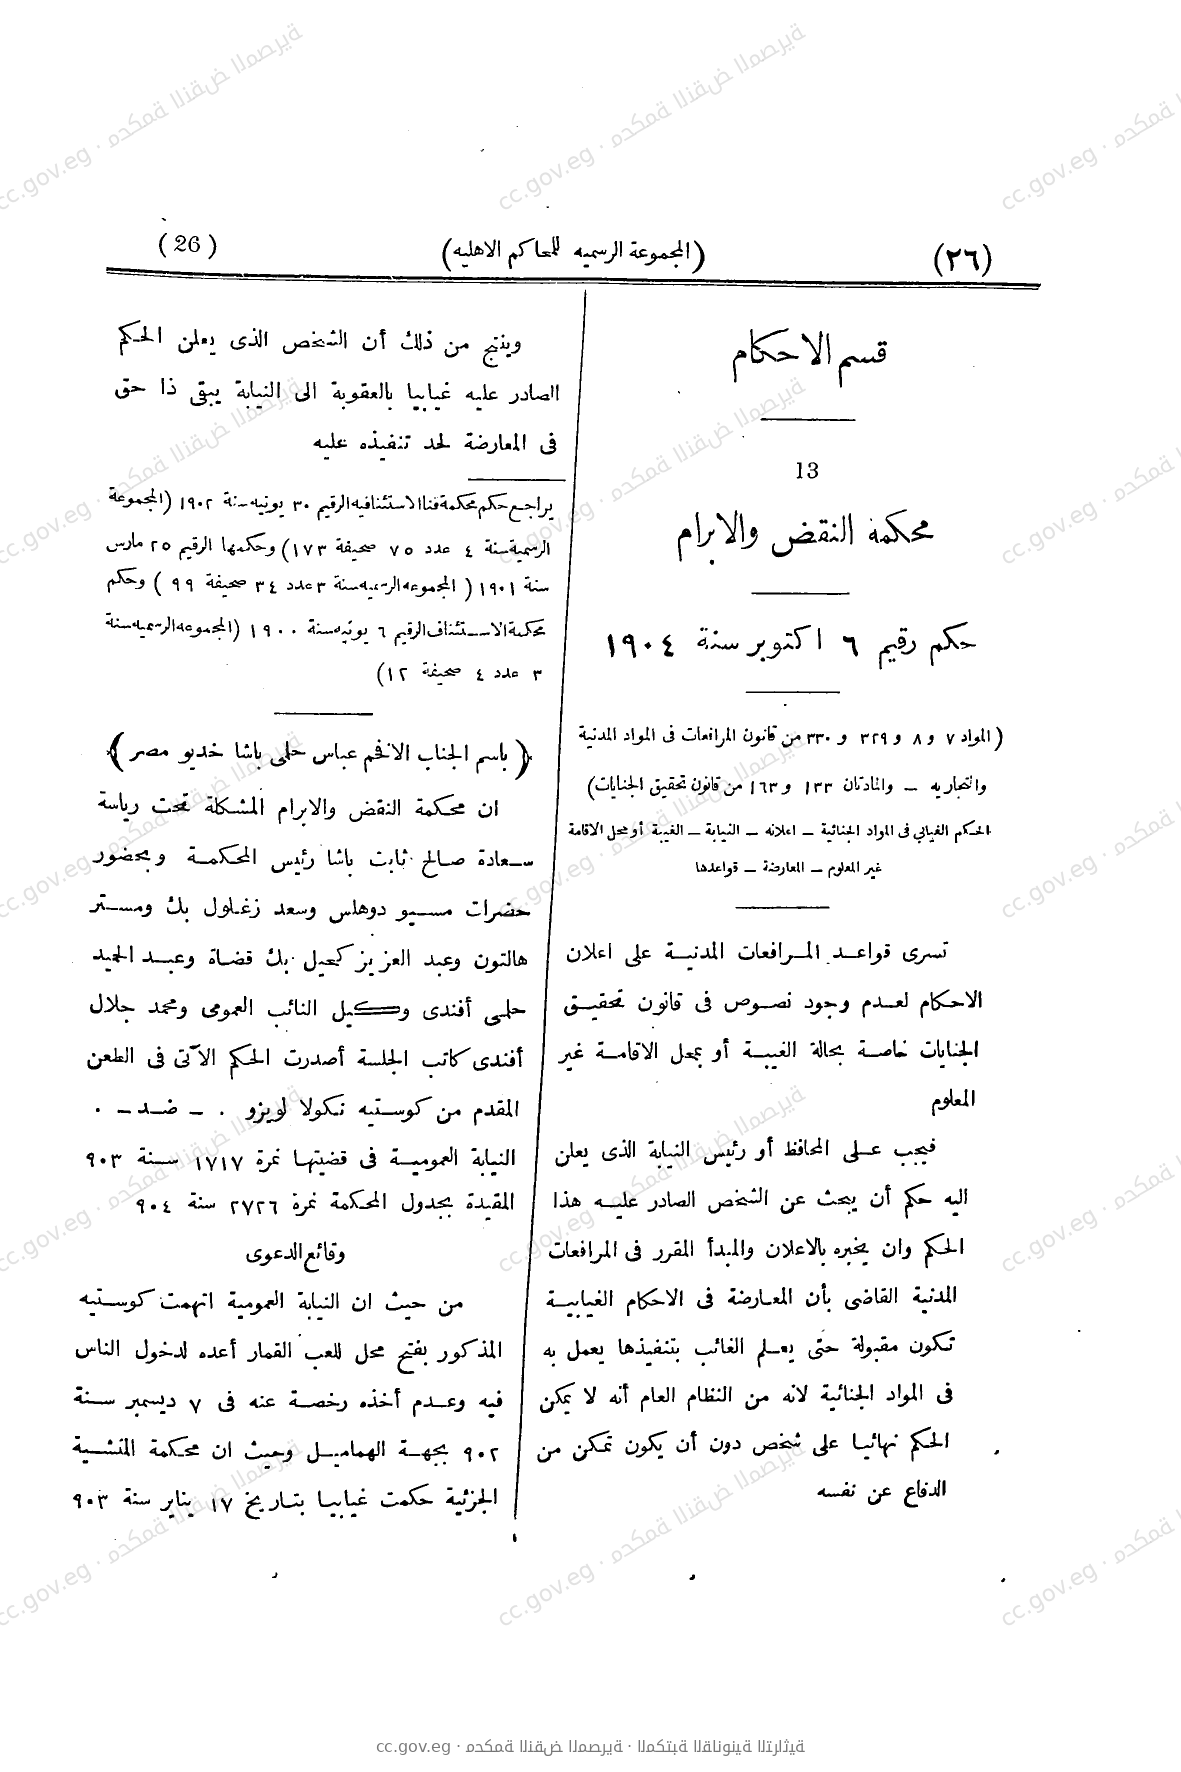 (٢٦)
(المجموعة الرسميه للمحاكم الاهليه)
(26)
قسم الاحكام
13
محكمة النقض والابرام
حكم رقيم ٦ اكتوبر سنة ١٩٠٤
(المواد ٧ و ٨ و ٣٢٩ و ٣٣٠ من قانون المرافعات فى المواد المدنية
والتجاريه – والمادتان ١٣٣ و ١٦٣ من قانون تحقيق الجنايات)
الحكم الغيابى فى المواد الجنائية – اعلانه – النيابة – الغيبة أو محل الاقامة
غير المعلوم – المعارضة – قواعدها
تسرى قواعد المرافعات المدنية على اعلان
الاحكام لعدم وجود نصوص فى قانون تحقيق
الجنايات خاصة بحالة الغيبة أو بمحل الاقامة غير
المعلوم
فيجب على المحافظ أو رئيس النيابة الذى يعلن
اليه حكم أن يبحث عن الشخص الصادر عليه هذا
الحكم وان يخبره بالاعلان والمبدأ المقرر فى المرافعات
المدنية القاضى بأن المعارضة فى الاحكام الغيابية
تكون مقبولة حتى يعلم الغائب بتنفيذها يعمل به
فى المواد الجنائية لانه من النظام العام أنه لا يمكن
الحكم نهائيا على شخص دون أن يكون تمكن من
الدفاع عن نفسه
وينتج من ذلك أن الشخص الذى يعلن الحكم
الصادر عليه غيابيا بالعقوبة الى النيابة يبقى ذا حق
فى المعارضة لحد تنفيذه عليه
يراجع حكم محكمة قنا الاستئنافيه الرقيم ٣٠ يونيه سنة ١٩٠٢ (المجموعة
الرسمية سنة ٤ عدد ٧٥ صحيفة ١٧٣) وحكمها الرقيم ٢٥ مارس
سنة ١٩٠١ (المجموعه الرسميه سنة ٣ عدد ٣٤ صحيفة ٩٩) وحكم
محكمة الاستئناف الرقيم ٦ يونيه سنة ١٩٠٠ (المجموعه الرسميه سنة
٣ عدد ٤ صحيفة ١٢)
(باسم الجناب الافخم عباس حلمى باشا خديو مصر)
ان محكمة النقض والابرام المشكلة تحت رياسة
سعادة صالح ثابت باشا رئيس المحكمة وبحضور
حضرات مسيو دوهلس وسعد زغلول بك ومستر
هالتون وعبد العزيز كحيل بك قضاة وعبد الحميد
حلمى أفندى وكيل النائب العمومى ومحمد جلال
أفندى كاتب الجلسة أصدرت الحكم الآتى فى الطعن
المقدم من كوستيه نكولا لويزو . – ضد – .
النيابة العمومية فى قضيتها نمرة ١٧١٧ سنة ٩٠٣
المقيدة بجدول المحكمة نمرة ٢٧٢٦ سنة ٩٠٤
وقائع الدعوى
من حيث ان النيابة العمومية اتهمت كوستيه
المذكور بفتح محل للعب القمار أعده لدخول الناس
فيه وعدم أخذه رخصة عنه فى ٧ ديسمبر سنة
٩٠٢ بجهة الهماميل وحيث ان محكمة المنشية
الجزئية حكمت غيابيا بتاريخ ١٧ يناير سنة ٩٠٣
cc.gov.eg · محكمة النقض المصرية · المكتبة القانونية التراثية